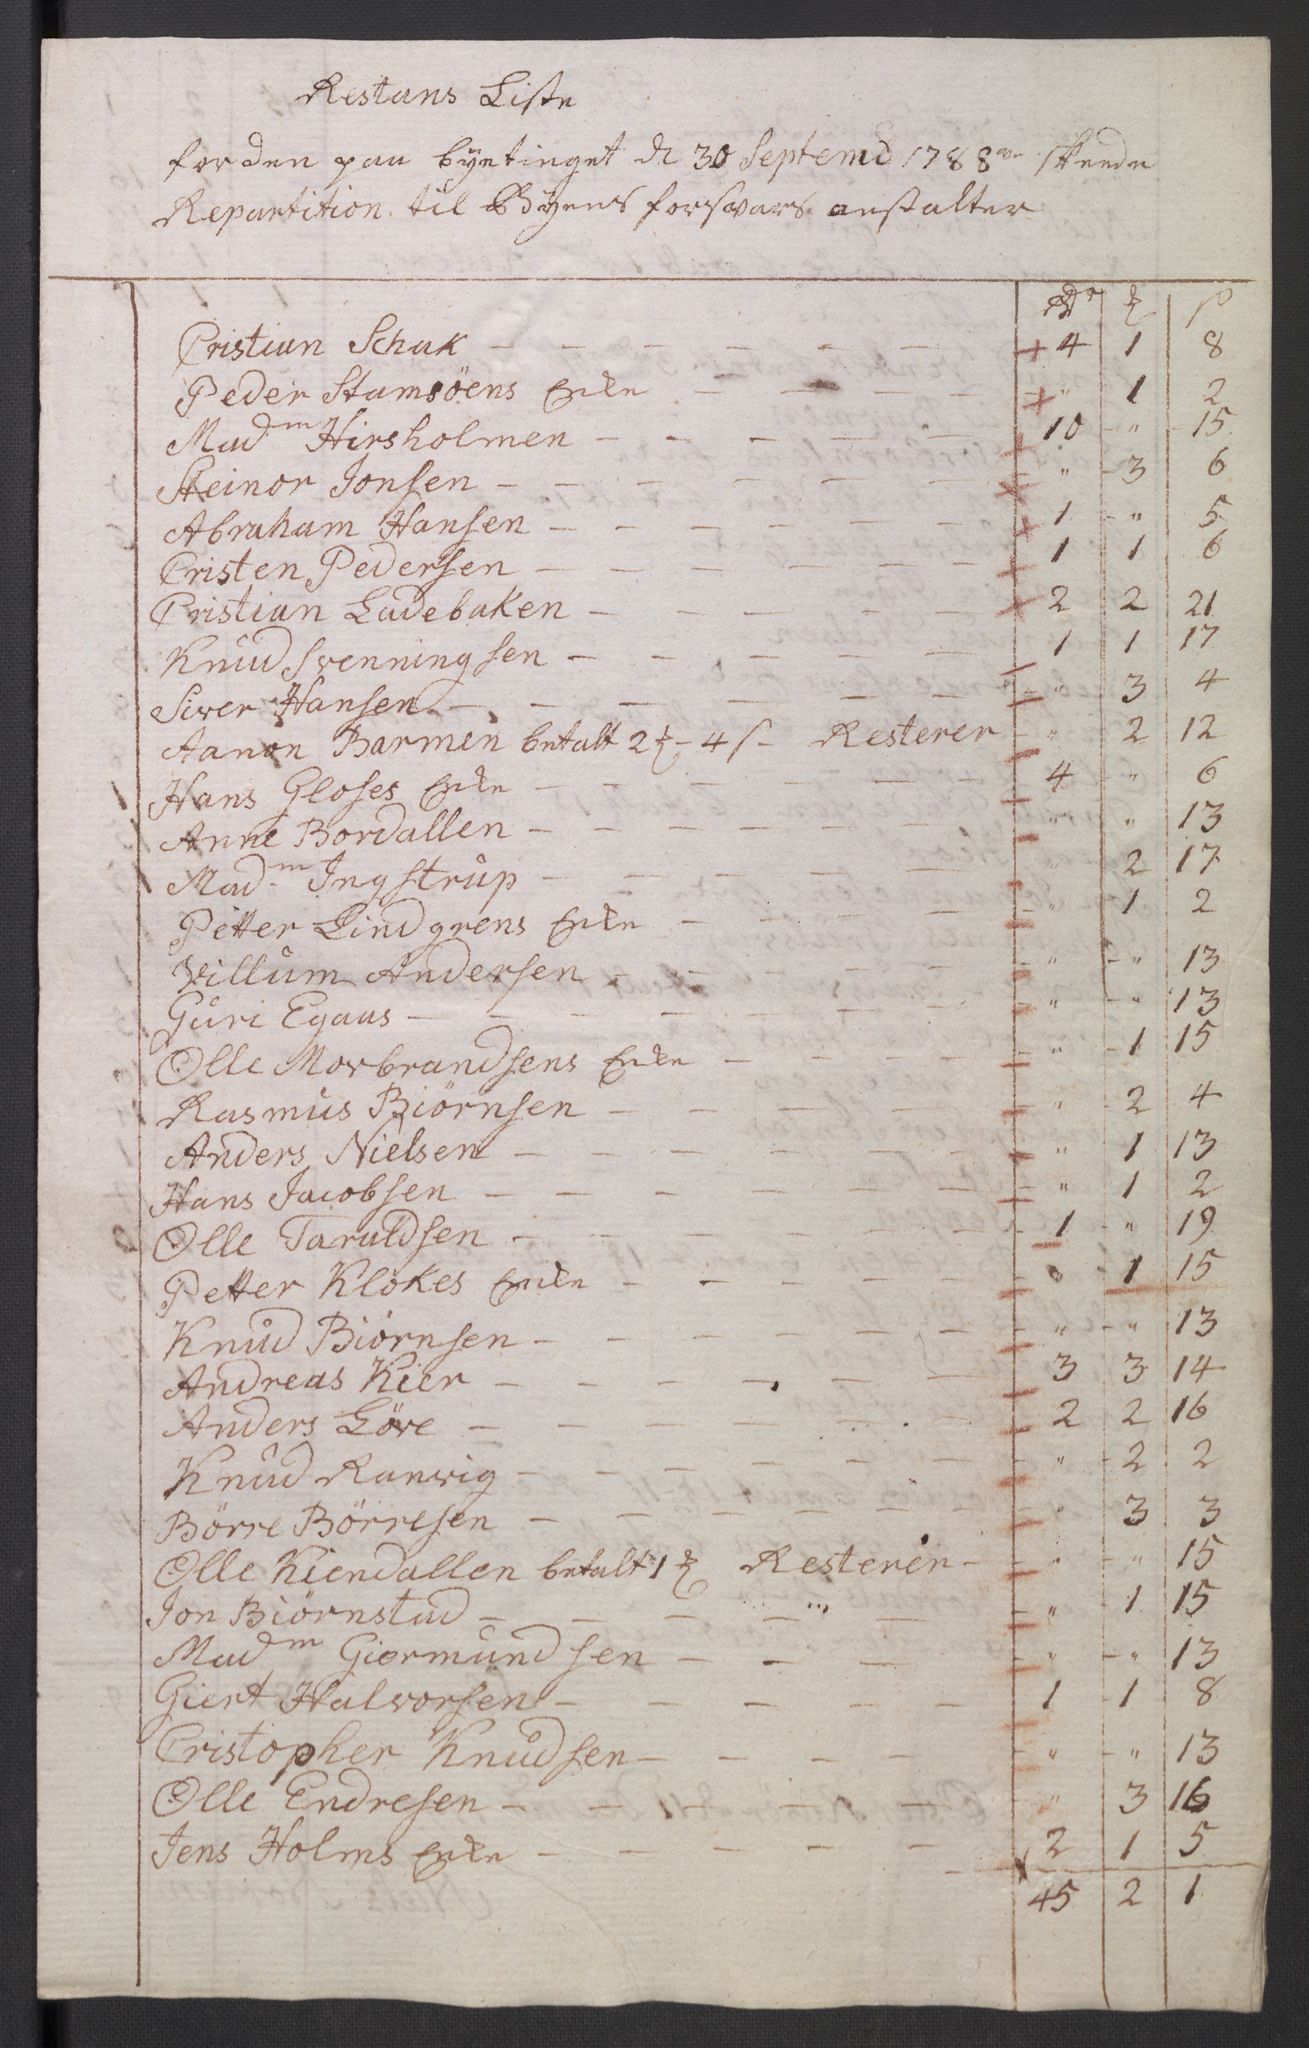 Restans Liste
for den paa bÿetinget d 30 Septemb 1788 skeede
Repartition til Bÿens forsvars anstalter
Rdr ₰ ß
Cristian Schak - - - - - - - 4 1 8
Peder Stamsöens Enke - - - - " 1 2
Madm Hirsholmen - - - - - 10 " 15
Steinor Jonsen - - - - - - - " 3 6
Abraham Hansen - - - - - - 1 " 5
Cristen Pedersen - - - - - - 1 1 6
Cristian Ladebaken - - - - - 2 2 21
Knud Svenningsen - - - - - 1 1 17
Siver Hansen - - - - - - " 3 4
Aanon Barmen betalt 2 ₰ - 4 ß - Resterer " 2 12
Hans Gloses Enke - - - - - - 4 " 6
Anne Bordallen - - - - - - " " 13
Madm Ingstrup - - - - - - " 2 17
Petter Lindgrens Enke - - - - " 1 2
Villum Andersen - - - - - " " 13
Guri Egaas - - - - - - - " " 13
Olle Morbrandsens Enke - - - - " 1 15
Rasmus Biörnsen - - - - - " 2 4
Anders Nielsen - - - - - - " 1 13
Hans Jacobsen - - - - - - - " 1 2
Olle Taraldsen - - - - - - 1 " 19
Petter Klokes Enke - - - - - " 1 15
Knud Biörnsen - - - - - - " " 13
Andreas Kier - - - - - - 3 3 14
Anders Göre - - - - - - - 2 2 16
Knud Ranvig - - - - - - - " 2 2
Börre Börresen - - - - - - " 3 3
Olle Kiendallen betalt 1 ₰ Resterer - " " 15
Jon Biörnstad - - - - " - " 1 15
Madm Giermundsen - - - - " " 13
Giert Halvorsen - - - - - - 1 1 8
Cristopher Knudsen - - - - - " " 13
Olle Endresen - - - - - - " 3 16
Jens Holms Enke - - - - - - 2 1 5
45 2 1